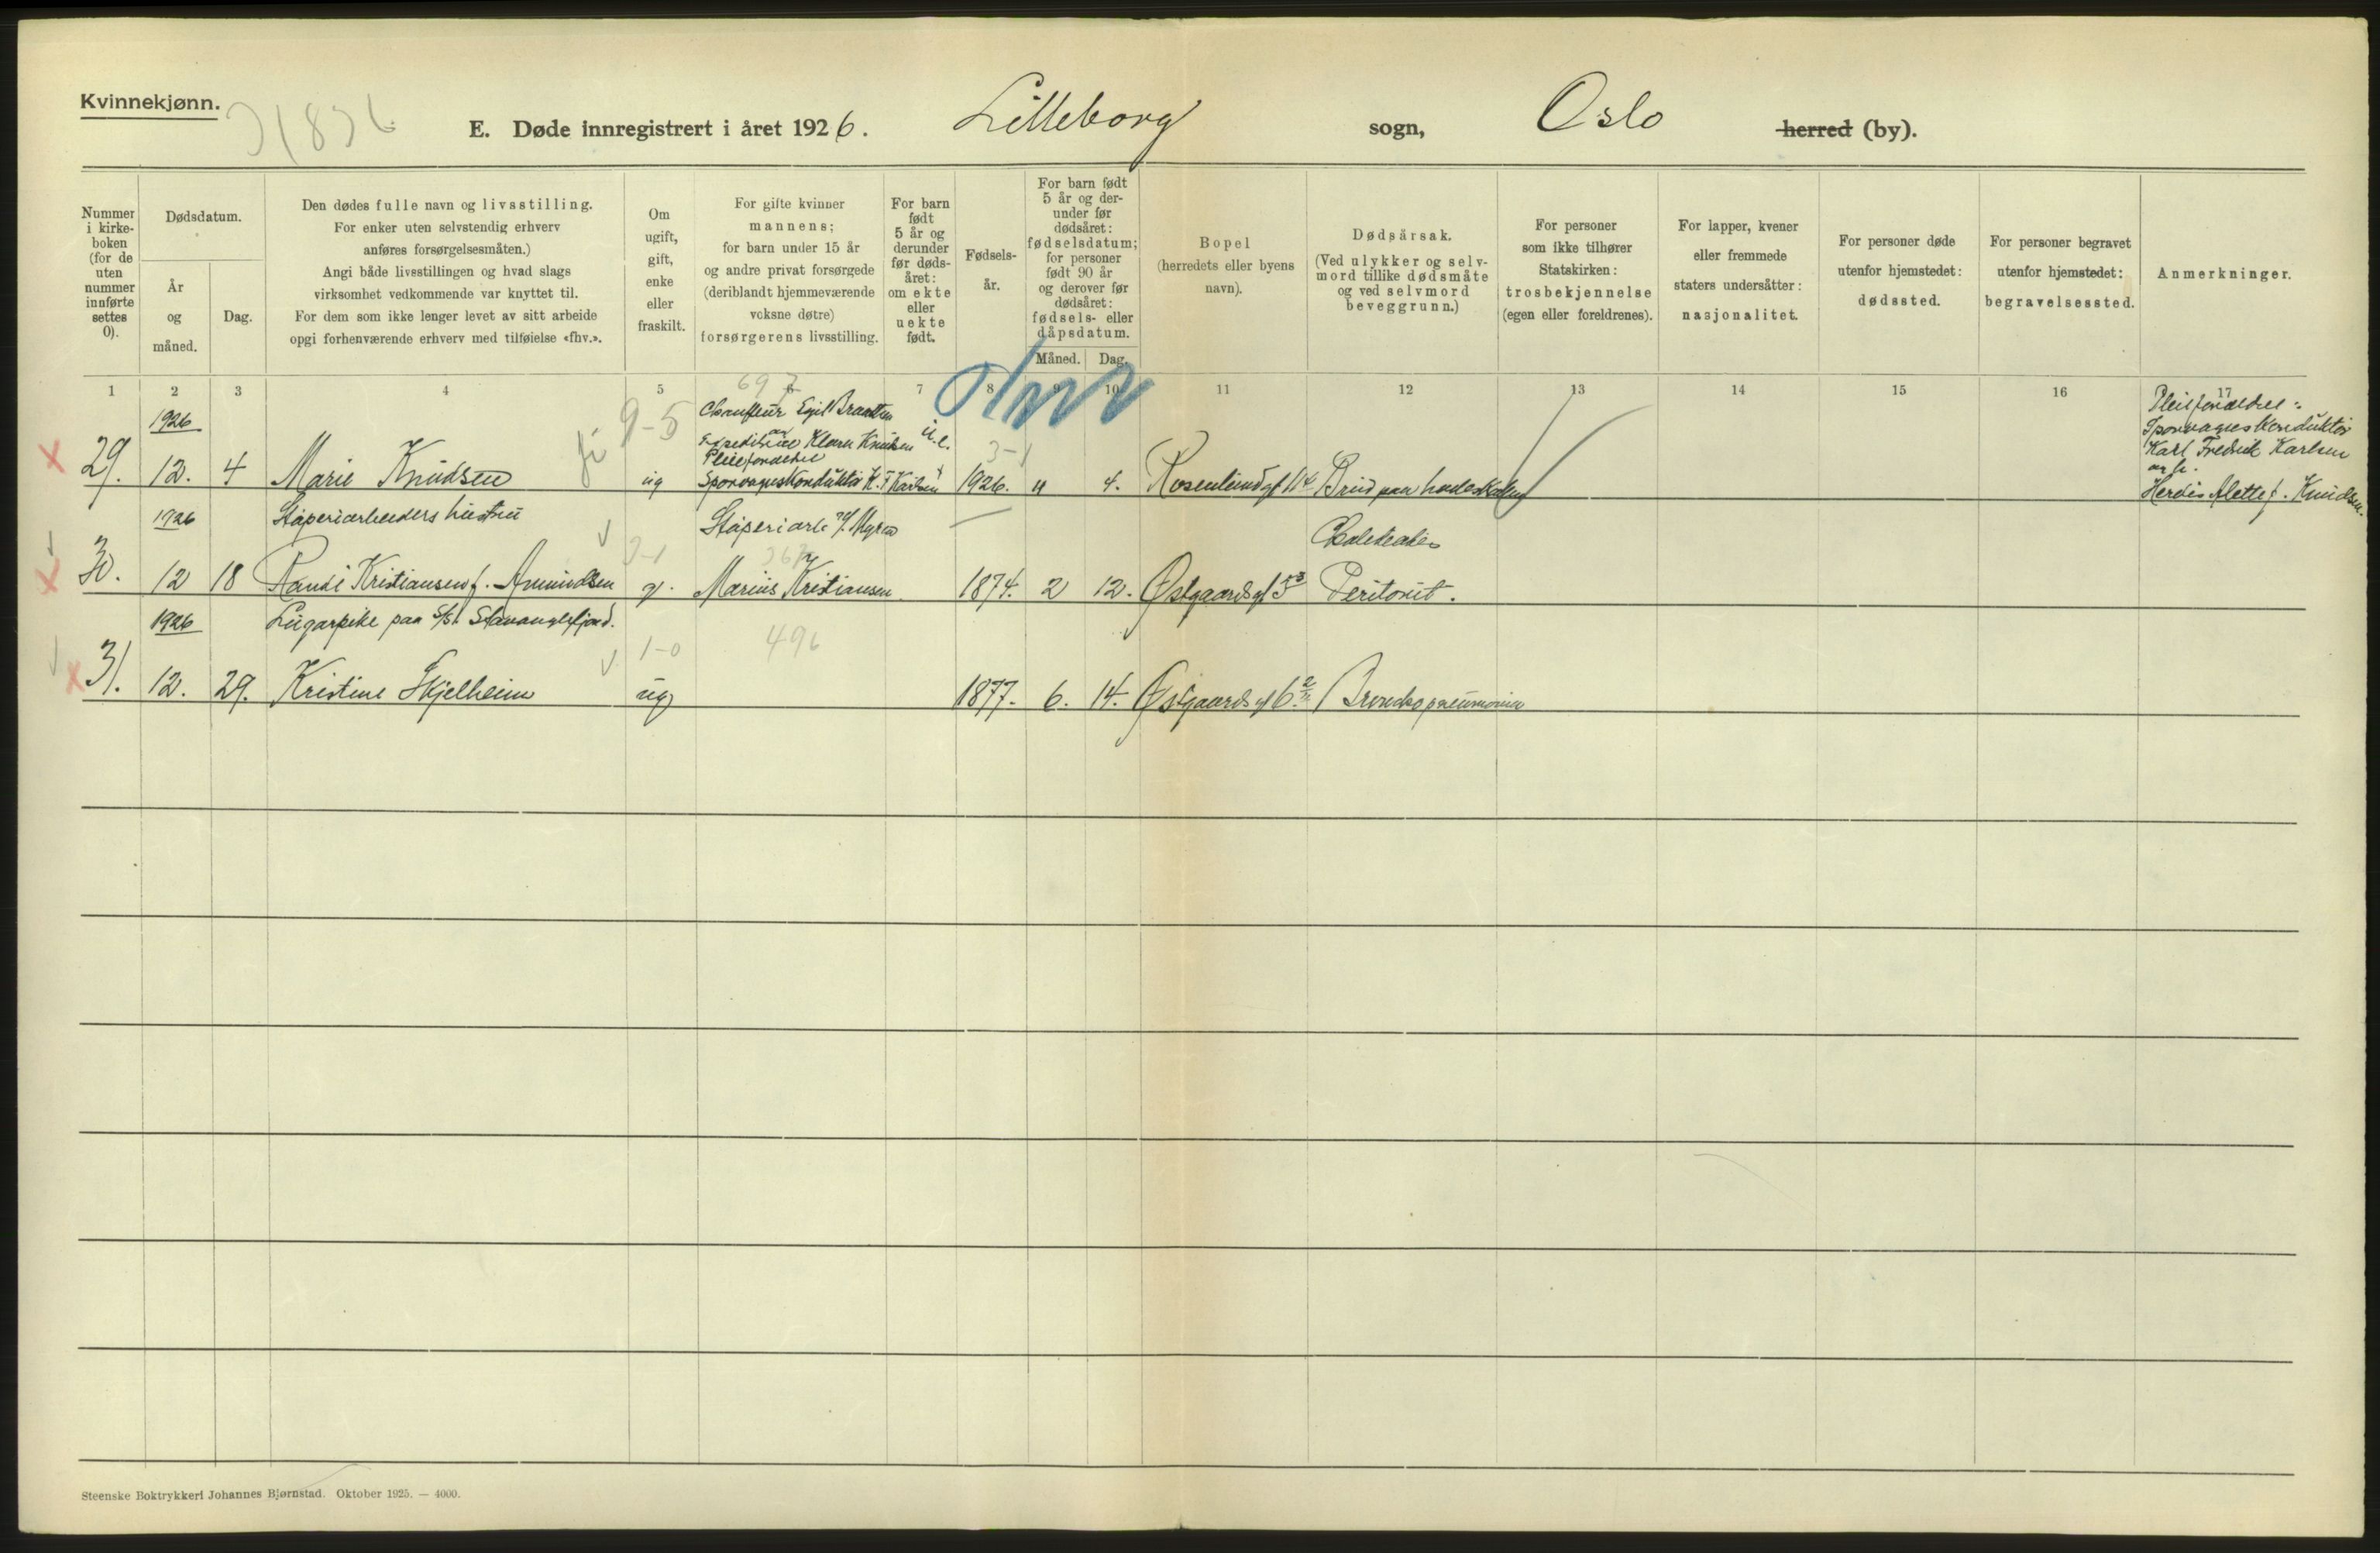 Kvinnekjønn.
E. Døde innregistrert i året 1926. Lilleborg sogn, Oslo herred (by).
Nummer i kirke-boken (for de uten nummer innførte settes 0).
Dødsdatum.
År og måned.
Dag.
Den dødes fulle navn og livsstilling.
For enker uten selvstendig erhverv
anføres forsørgelsesmåten.)
Angi både livsstillingen og hvad slags
virksomhet vedkommende var knyttet til.
For dem som ikke lenger levet av sitt arbeide
opgi forhenværende erhverv med tilføielse «fhv.».
Om ugift, gift, enke eller fraskilt.
For gifte kvinner
mannens;
for barn under 15 år
og andre privat forsørgede
(deriblandt hjemmeværende
voksne døtre)
forsørgerens livsstilling.
For barn født 5 år og derunder før døds-året: om ekte eller uekte født.
Fødsels-år.
For barn født 5 år og der-under før dødsåret: fødselsdatum; for personer født 90 år og derover før dødsåret: fødsels- eller dåpsdatum.
Måned. Dag.
Bopel
(herredets eller byens
navn).
Dødsårsak.
(Ved ulykker og selv-
mord tillike dødsmåte
og ved selvmord
beveggrunn.)
For personer
som ikke tilhører
Statskirken:
trosbekjennelse
(egen eller foreldrenes).
For lapper, kvener
eller fremmede
staters undersåtter:
nasjonalitet.
For personer døde
utenfor hjemstedet:
dødssted.
For personer begravet
utenfor hjemstedet:
begravelsessted.
Anmerkninger.
1 2 3 4 5 6 7 8 9 10 11 12 13 14 15 16 17
697
1926
9-5
Chauffeur Egil Braathen
Klara Knudsen
u.e.
3-1
29. 12. 4 Marie Knudsen ug Sporvagnskonduktør K. F. Karlsen 1926. 4. Rosenlundgt 114
Sporvagnskonduktør
Karl Fredrik Karlsen
Herdis Alette f. Knudsen.
1926 Støperiarbeiders hustru Støperiarb. v/ Myren
3-1
30. 12 18 Randi Kristiansen f. Amundsen g. Marius Kristiansen 1874. 2 12. Østgaardsgt Peritonit.
1926 Lugarpike paa Stavangerfjord.
1-0 496
31. 12. 29. Kristine Skjelheim ug 1877. 6. 14. Østgaardsgt 6 Bronchopneumonia
Steenske Boktrykkeri Johannes Bjørnstad. Oktober 1925. — 4000.